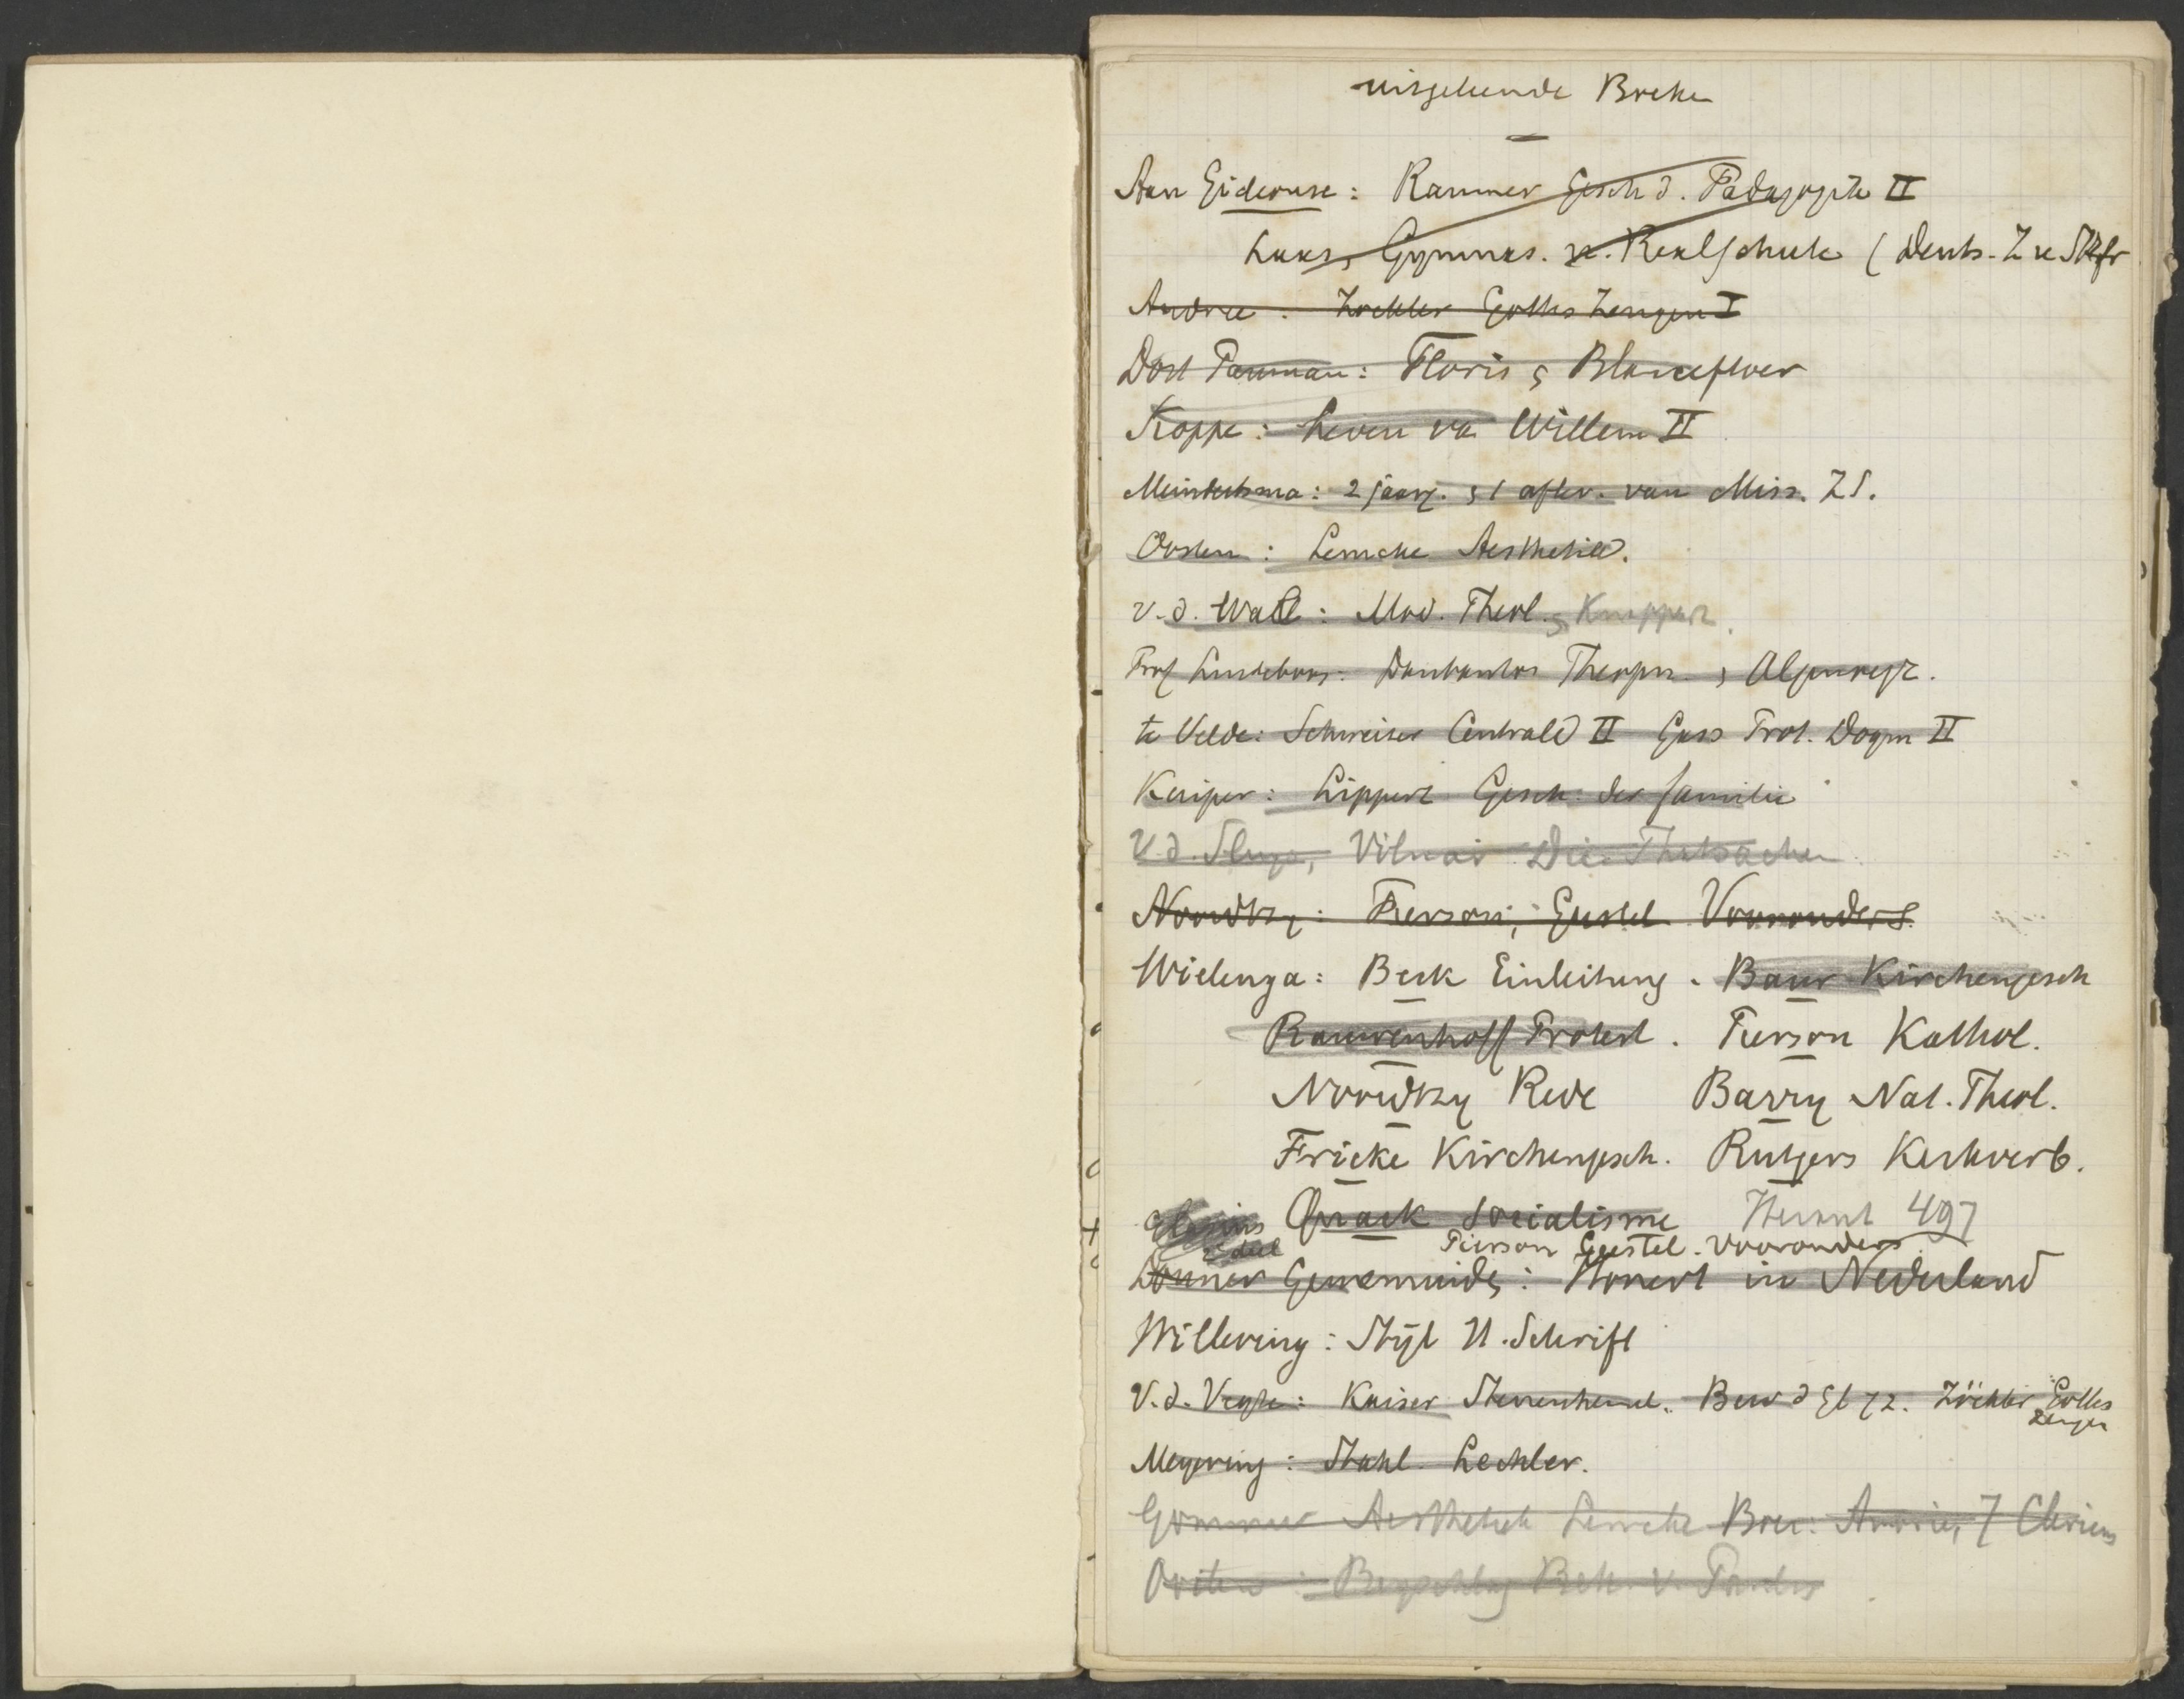 uitgeleende Boeken
Aan Eiderouse: Raumer Gesch d. Pädagogik II
Laas, Gymnas. u. Realschule (Deuts. Z u Stfr
Andree: Zockler Gottes Zeugen I
Dost Pauman: Floris & Blancefloer
Koppe: Leven va Willem II
Meindertsma: 2 jaarg. & 1 aflev. van Miss. ZS.
Oosten: Lemcke Aesthetik.
v. d. Wall: Mod. Theol. & Knappert.
Prof Lindeboom: Theopn. &
te Velde: Schweizer Centrald II Gass Prot. Dogm II
Kuiper: Lippert Gesch. der familie
V. d. Sluys, Vilmar Die Thatsachen
Noordtzy: Pierson, Geestel Vooronders.
Wielenga: Beck Einleitung. Baur Kirchengesch
Rauwenhoff Protest. Pierson Kathol.
Noordtzy Rede Barry Nat. Theol.
Fricke Kirchengesch. Rutgers Kerkverb.
Quack Socialisme 497
2e deel Pierson Geestel. Vooronders.
Donner Genemuiden: Honert in Nederland
Willering: Stijl H. Schrift
V. d. Vegte: Kaiser Sterrenhemel. Bew d Gel 72. Zöckler Gottes
Zeugen
Meyering: Stahl. Lechler.
Gommer Aesthetik Lemcke
Beyschlag Bek. v. Paulus